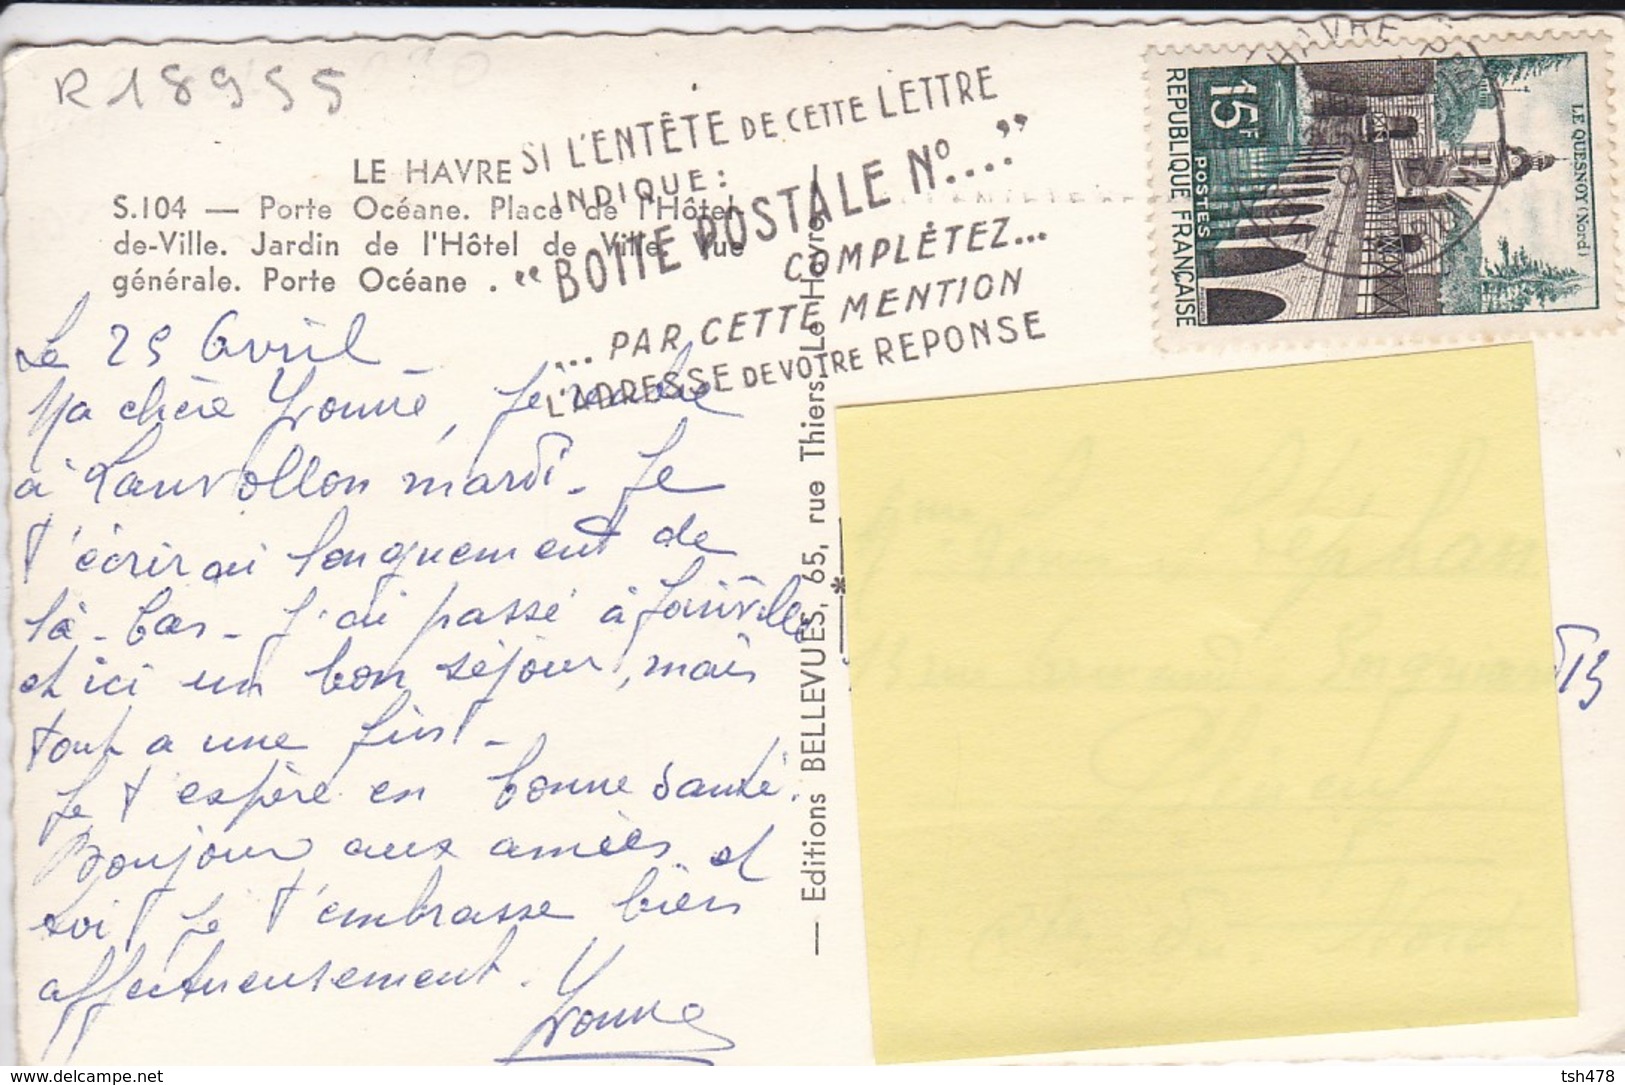 R 18955
LE HAVRE
S.104 — Porte Océane. Place de l'Hôtel-
de-Ville. Jardin de l'Hôtel de Ville. Vue
générale. Porte Océane .
SI L'ENTÊTE DE CETTE LETTRE
INDIQUE:
"BOITE POSTALE Nº..."
COMPLÈTEZ...
...PAR CETTE MENTION
L'ADRESSE DE VOTRE REPONSE
HAVRE
15F
POSTES
REPUBLIQUE FRANÇAISE
LE QUESNOY (Nord)
Le 25 Avril
Ma chère Yvonne, Je rentre
à Lanvollon mardi - Je
t'écrirai longuement de
là-bas - J'ai passé à Joinville
et ici un bon séjour, mais
tout a une fin -
Je t'espère en bonne santé.
Bonjour aux amies et
toi Je t'embrasse bien
affectueusement.
Yvonne
— Editions BELLEVUES, 65, rue Thiers, Le Havre
delcampe.net
tsh478